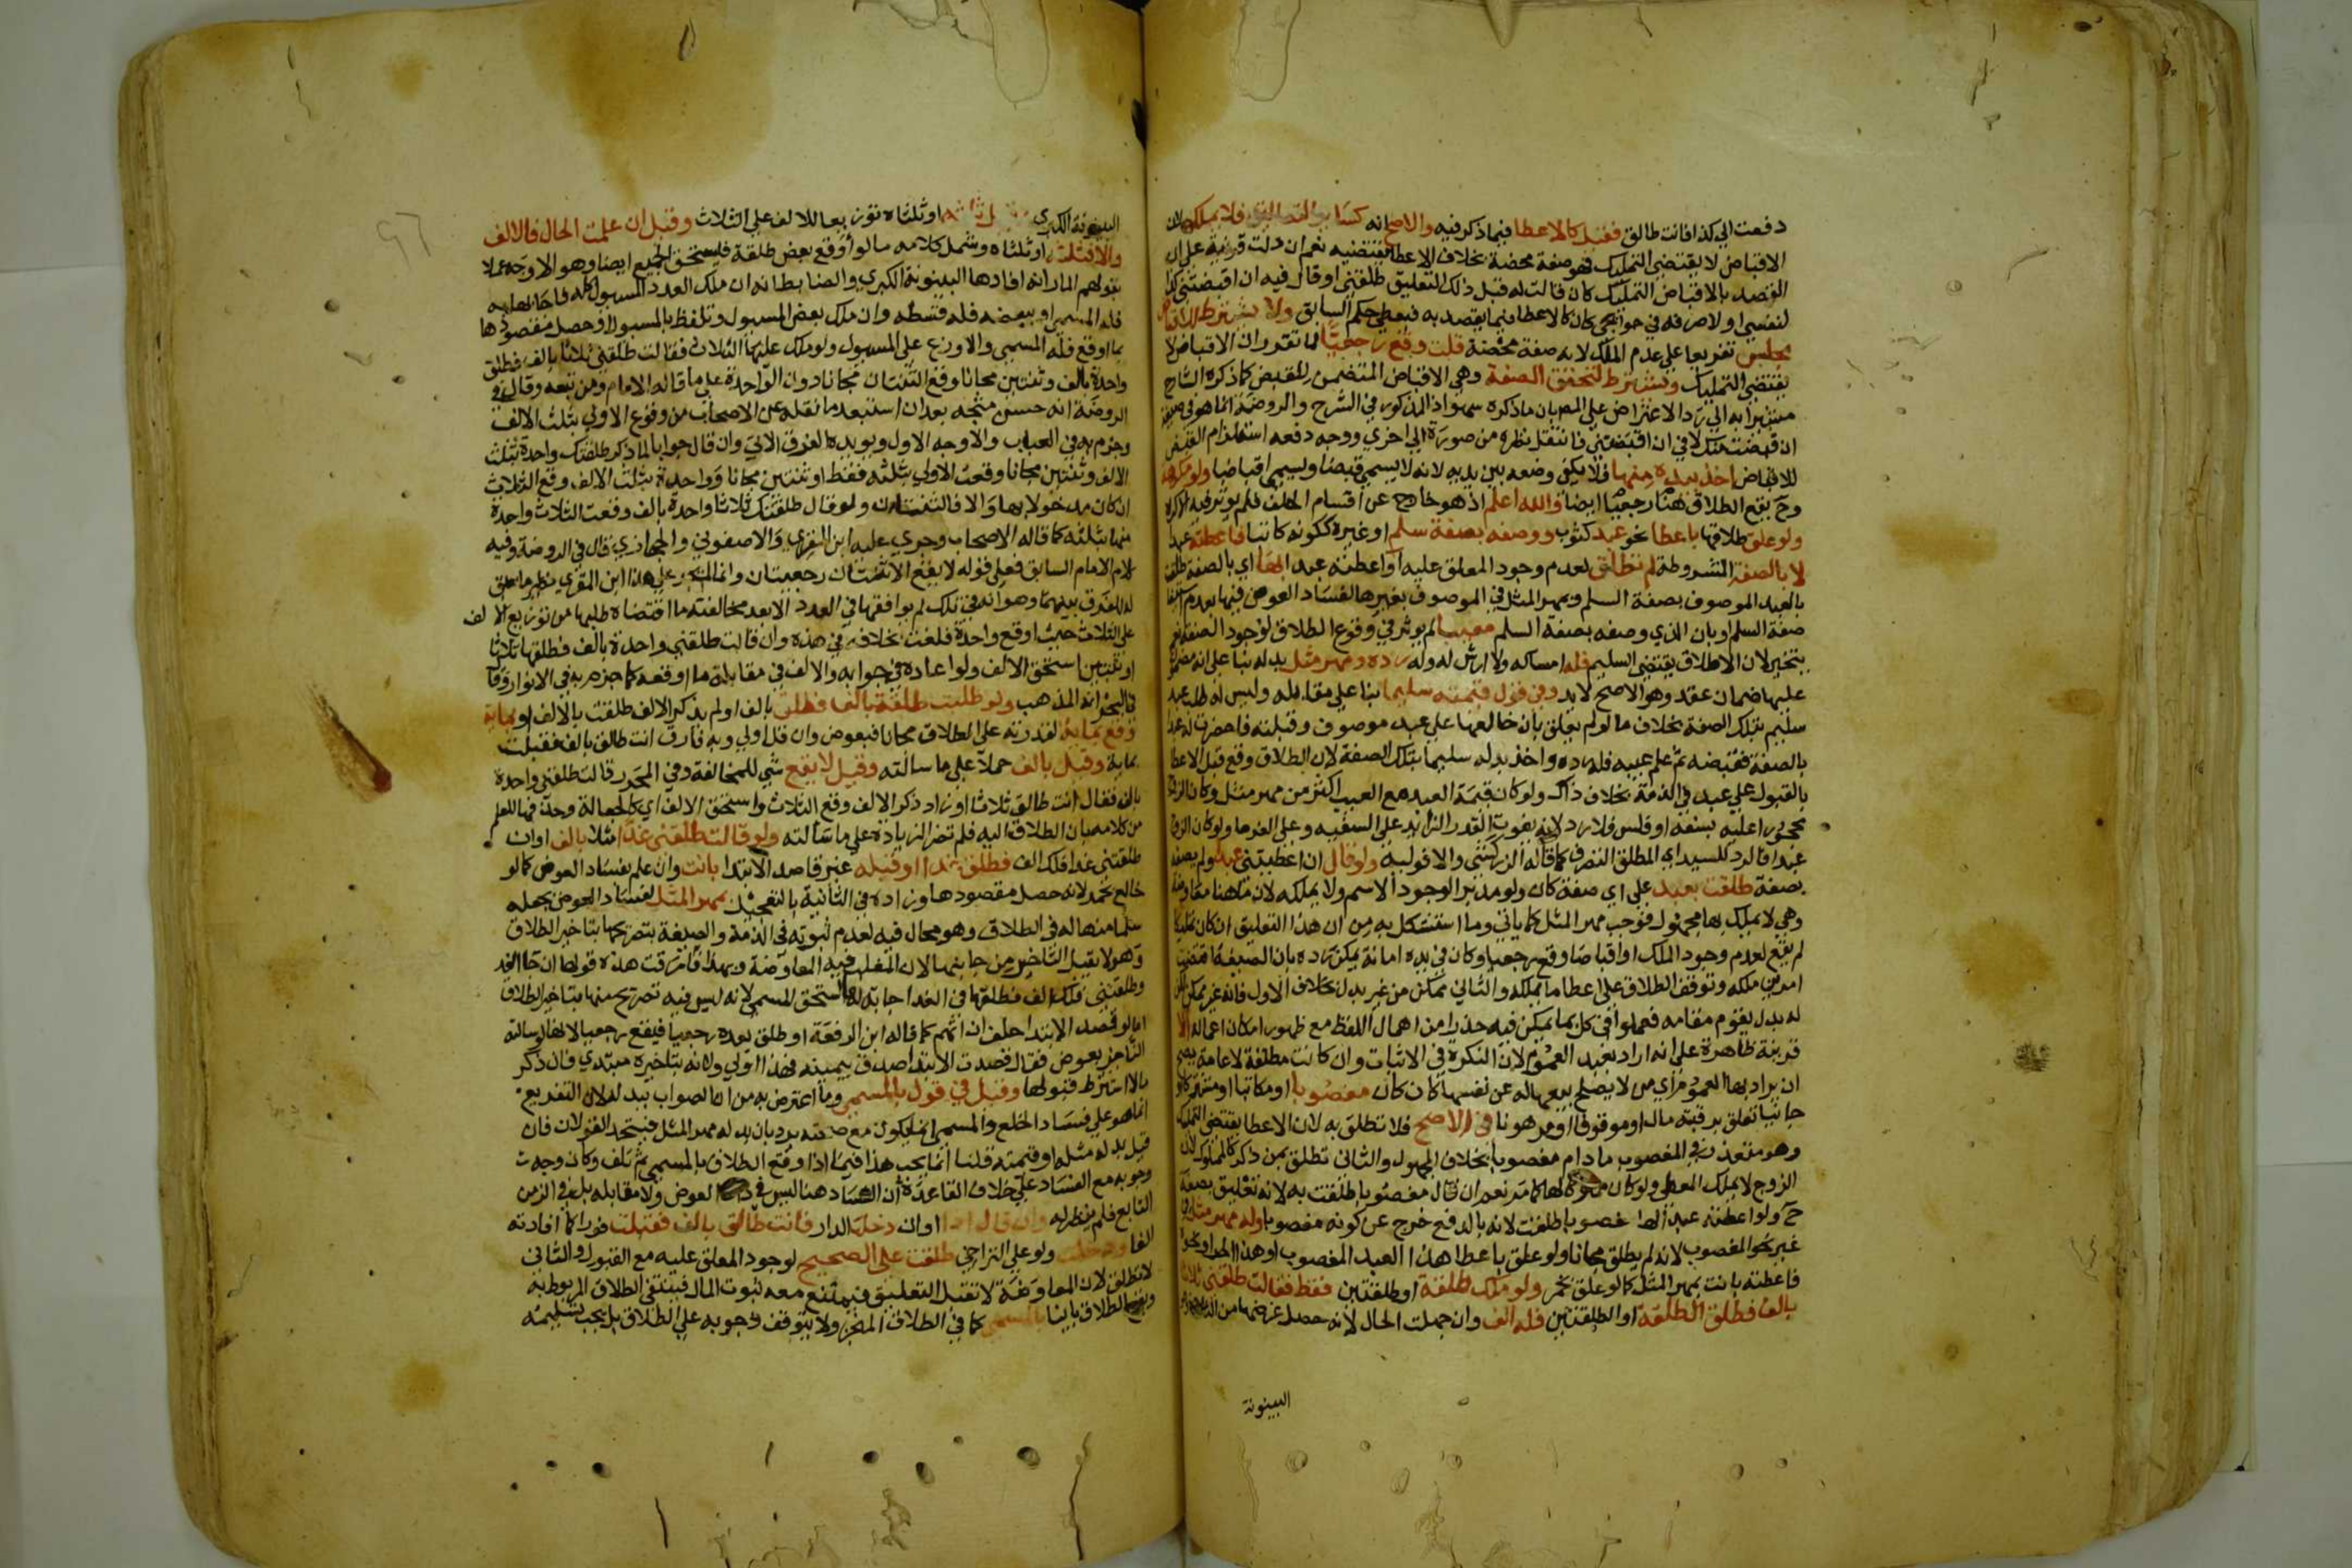 دفعت الي كذا فانت طالق فقيل كالاعطا فيما ذكر فيه والاصح انه كسائر التعاليق فلا يملكه لان
الاقباض لا يقتضي التمليك فهو صفة محضة بخلاف الاعطا يقتضيه نعم ان دلت قرينة على ان
القصد بالاقباض التمليك كان قالت له قبل ذلك التعليق طلقني او قال فيه ان اقبضتني كذا
لنفسي او لاصرفه في حوائجي كان كالاعطا فيما يقصد به فيعطي حكم السابق ولا يشترط للاقباض
مجلس تفريعا علي عدم الملك لانه صفة محضة قلت ويقع رجعيا لما تقرر ان الاقباض لا
يقتضي التمليك ويشترط لتحقق الصفة وهي الاقباض المتضمن للقبض كما ذكره الشارح
مشيرا به الي رد الاعتراض علي المص بان ما ذكره سهو اذ المذكور في الشرح والروضة انما هو في صيغة
ان قبضت منك لا في ان اقبضتني فانتقل نظره من صورة الي اخري ووجه دفعه استلزام القبض
للاقباض اخذ بيده منها فلا يكفي وضعه بين يديه لانه لا يسمي قبضا ويسمي اقباضا ولو مكرهة
وح يقع الطلاق هنا رجعيا ايضا والله اعلم اذ هو خارج عن اقسام الخلف فلم يوثر فيه الاكراه
ولو علق طلاقها باعطا نحو عبد كثوب ووصفه بصفة سلم او غيره ككونه كاتبا فاعطته عبدا
لا بالصفة المشروطة لم تطلق لعدم وجود المعلق عليه او اعطته عبدا بها اي بالصفة طلقت
بالعبد الموصوف بصفة السلم وبمهر المثل في الموصوف بغيرها لفساد العوض فيها بعدم استيفا
صفة السلم او بان الذي وصفه بصفة السلم معيبا لم يوثر في وقوع الطلاق لوجود الصفة نعم
يتخير لان الاطلاق يقتضي السليم فله امساكه ولا ارش له وله رده ومهر مثل بدله بنا علي انه مضمون
عليها ضمان عقد وهو الاصح لا يد وفي قول قيمته سليما بنا علي مقابله وليس له طلب عبد
سليم بتلك الصفة بخلاف ما لو لم يعلق بان خالعها علي عبد موصوف وقبلته فاحضرت له عبدا
بالصفة فقبضه ثم علم عيبه فله رده واخذ بدله سليما بتلك الصفة لان الطلاق وقع قبل الاعطا
بالقبول علي عبد في الذمة بخلاف ذاك ولو كان قيمة العبد مع العيب اكثر من مهر مثل وكان الزوج
محجورا عليه بسفه او فلس فلا رد لانه يفوت القدر الزايد علي السفيه وعلي الغرما ولو كان الزوج
عبدا فالرد للسيد اي المطلق التصرف كما قاله الزركشي والا فوليه ولو قال ان اعطيتني عبدا ولم يصفه
بصفة طلقت بعبد علي اي صفة كان ولو مدبرا لوجود الاسم ولا يملكه لان ما هنا معاوضة
وهي لا يملك بها مجهول فوجب مهر المثل كما ياتي وما استشكل به من ان هذا التعليق ان كان تمليكا
لم يقع لعدم وجود الملك او اقباضا وقع رجعيا وكان في يده امانة يمكن رده بان الصيغة اقتضت
امرين ملكه وتوقف الطلاق علي اعطا ما يملكه والثاني ممكن من غير بدل بخلاف الاول فانه غير ممكن لكن
له بدل يقوم مقامه فعملوا في كل بما يمكن فيه حذرا من اهمال اللفظ مع ظهور امكان اعماله الا
قرينة ظاهرة علي انه اراد بعبد العموم لان النكرة في الاثبات وان كانت مطلقة لا عامة يصح
ان يراد بها العموم اي من لا يصلح بيعها له عن نفسها كان كان مغصوبا او مكاتبا او مشتركا او
جانيا تعلق برقبته مال او موقوفا او مرهونا في الاصح فلا تطلق به لان الاعطا يقتضي التمليك
وهو متعذر في المغصوب ما دام مغصوبا بخلاف المجهول والثاني تطلق بمن ذكر كالمملوك لان
الزوج لا يملك المعطي ولو كان مملوكا لها كما مر نعم ان قال مغصوبا طلقت به لانه تعليق بصفة
ح ولو اعطته عبدا لها غصوبا طلقت لانه بالدفع خرج عن كونه مغصوبا وله مهر مثل في
غير نحو المغصوب لانه لم يطلق مجانا ولو علق باعطا هذا العبد المغصوب او هذا الحر او نحوه
فاعطته بانت بمهر المثل كما لو علق بخمر ولو ملك طلقة او طلقتين فقط فقالت طلقني ثلاثا
بالف فطلق الطلقة او الطلقتين فله الف وان جهلت الحال لانه حصل غرضها من الثلاث وهو
البينونة
البينونة الكبري وقيل ثلثه او ثلثاه توزيعا للالف علي الثلاث وقيل ان علمت الحال فالالف
والا فثلثه او ثلثاه وشمل كلامه ما لو اوقع بعض طلقة فيستحق الجميع ايضا وهو الاوجه عملا
بقولهم المار انه افادها البينونة الكبري والضابط انه ان ملك العدد المسئول كله فاجابها به
فله المسمي او ببعضه فله قسطه وان ملك بعض المسئول وتلفظ بالمسئول او حصل مقصودها
بما اوقع فله المسمي والا وزع علي المسئول ولو ملك عليها الثلاث فقالت طلقني ثلاثا بالف فطلق
واحدة بالف وثنتين مجانا وقع الثنتان مجانا دون الواحدة علي ما قاله الامام ومن تبعه وقال في
الروضة انه حسن متجه بعد ان استبعد ما نقله عن الاصحاب من وقوع الاولي بثلث الالف
وجزم به في العباب والاوجه الاول ويويده الفرق الاتي وان قال جوابا لما ذكر طلقتك واحدة بثلث
الالف وثنتين مجانا وقعت الاولي بثلثه فقط او ثنتين مجانا وواحدة بثلث الالف وقع الثلاث
ان كان مدخولا بها والا فالثنتان ولو قال طلقتك ثلاثا واحدة بالف وقعت الثلاث واحدة
منها بثلثه كما قاله الاصحاب وجري عليه ابن المقري والاصفوني والحجازي قال في الروضة وفيه
كلام الامام السابق فعلي قوله لا يقع الا ثنتان رجعيتان وانما لم يجر علي هذا ابن المقري نظير ما سبق
له للفرق بينهما وهو انه في تلك لم يوافقها في العدد الا بعد مخالفته ما اقتضاه طلبها من توزيع الالف
علي الثلاث حيث اوقع واحدة فلغت بخلافه في هذه وان قالت طلقني واحدة بالف فطلقها ثلاثا
او ثنتين استحق الالف ولو اعاده في جوابه والالف في مقابلة ما اوقعه كما جزم به في الانوار وقا
في البحر انه المذهب ولو طلبت طلقة بالف فطلق بالف او لم يذكر الالف طلقت بالالف او بماية
وقع بماية لقدرته علي الطلاق مجانا فبعوض وان قل اولي وبه فارق انت طالق بالف فقبلت
بماية وقيل بالف حملا علي ما سالته وقيل لا يقع شي للمخالفة وفي المحرر قالت طلقني واحدة
بالف فقال انت طالق ثلاثا او زاد ذكر الالف وقع الثلاث واستحق الالف اي كالجعالة وحذفها للعلم
من كلامه بان الطلاق اليه فلم تضر الزيادة علي ما سالته ولو قالت طلقني غدا مثلا بالف او ان
طلقتني غدا فلك الف فطلق غدا او قبله غير قاصد الابتدا بانت وان علم بفساد العوض كما لو
خالع بخمر لانه حصل مقصودها وزاده في الثانية بالتعجيل بمهر المثل لفساد العوض بجعله
سلما منها له في الطلاق وهو محال فيه لعدم ثبوته في الذمة والصيغة بتصريحها بتاخير الطلاق
وهو لا يقبل التاخير من جانبها لان المغلب فيه المعاوضة وبهذا فارقت هذه قولها ان جا الغد
وطلقتني فلك الف فطلقها في الغد اجابة لها استحق المسمي لانه ليس فيه تصريح منها بتاخير الطلاق
اما لو قصد الابتدا حلف ان اتهم كما قاله ابن الرفعة او طلق بعده رجعيا فيقع رجعيا لانها لو سالته
الناجز بعوض فقال قصدت الابتدا صدق بيمينه فهذا اولي ولانه بتاخيره مبتدي فان ذكر
مالا اشترط قبولها وقيل في قول بالمسمي وما اعترض به من ان الصواب ببدله لان التفريع
انما هو علي فساد الخلع والمسمي انما يكون مع صحته يرد بان بدله مهر المثل فيتحد القولان فان
قيل بدله مثله او قيمته قلنا انما يجب هذا فيما اذا وقع الطلاق بالمسمي ثم تلف وكان وجه
وجوبه مع الفساد علي خلاف القاعدة ان الفساد هنا ليس في ذات العوض ولا مقابله بل في الزمن
التابع فلم ينظر له وان قال اذا او ان دخلت الدار فانت طالق بالف فقبلت فورا كما افادته
الفا ودخلت ولو علي التراخي طلقت علي الصحيح لوجود المعلق عليه مع القبول والثاني
لا تطلق لان المعاوضة لا تقبل التعليق فيمتنع معه ثبوت المال فينتفي الطلاق المربوط به
ويقع الطلاق باينا بالمسمي كما في الطلاق المنجز ولا يتوقف وجوبه علي الطلاق بل يجب تسليمه